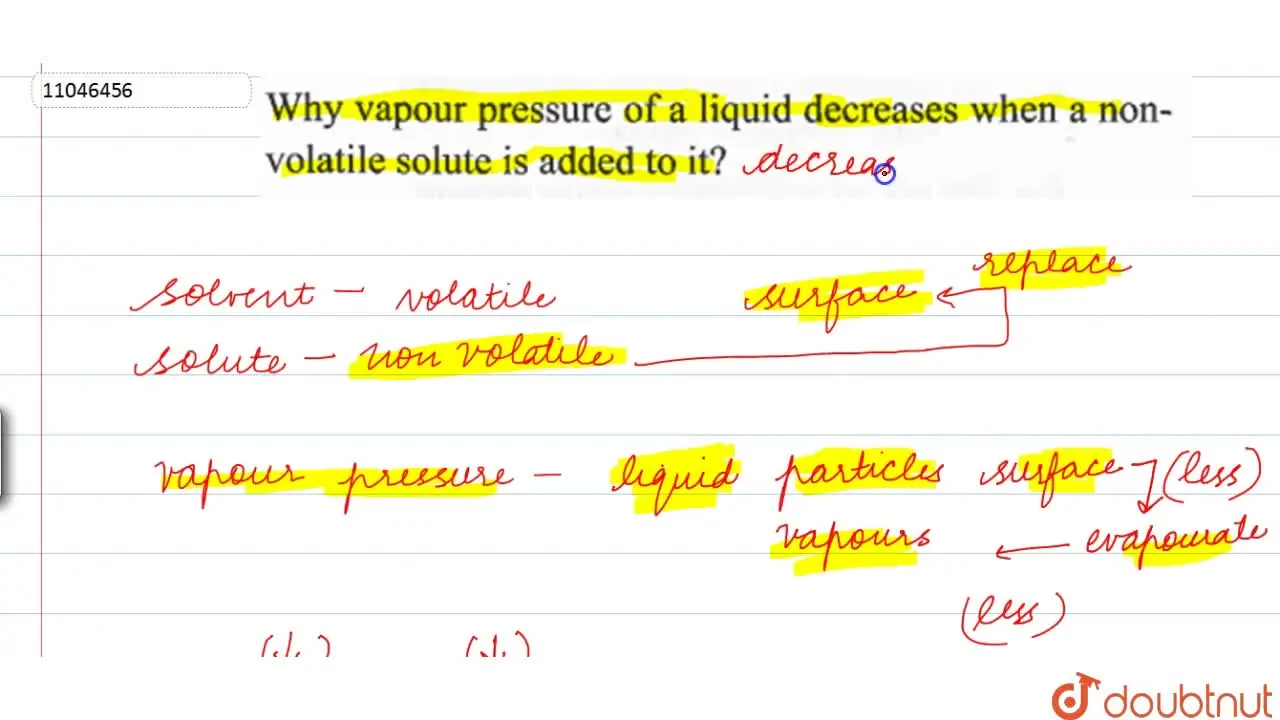 11046456
Why vapour pressure of a liquid decreases when a non-
volatile solute is added to it? decreas
replace
solvent - volatile surface
solute - non volatile
vapour pressure - liquid particles surface (less)
vapours ← evapourate
(less)
doubtnut